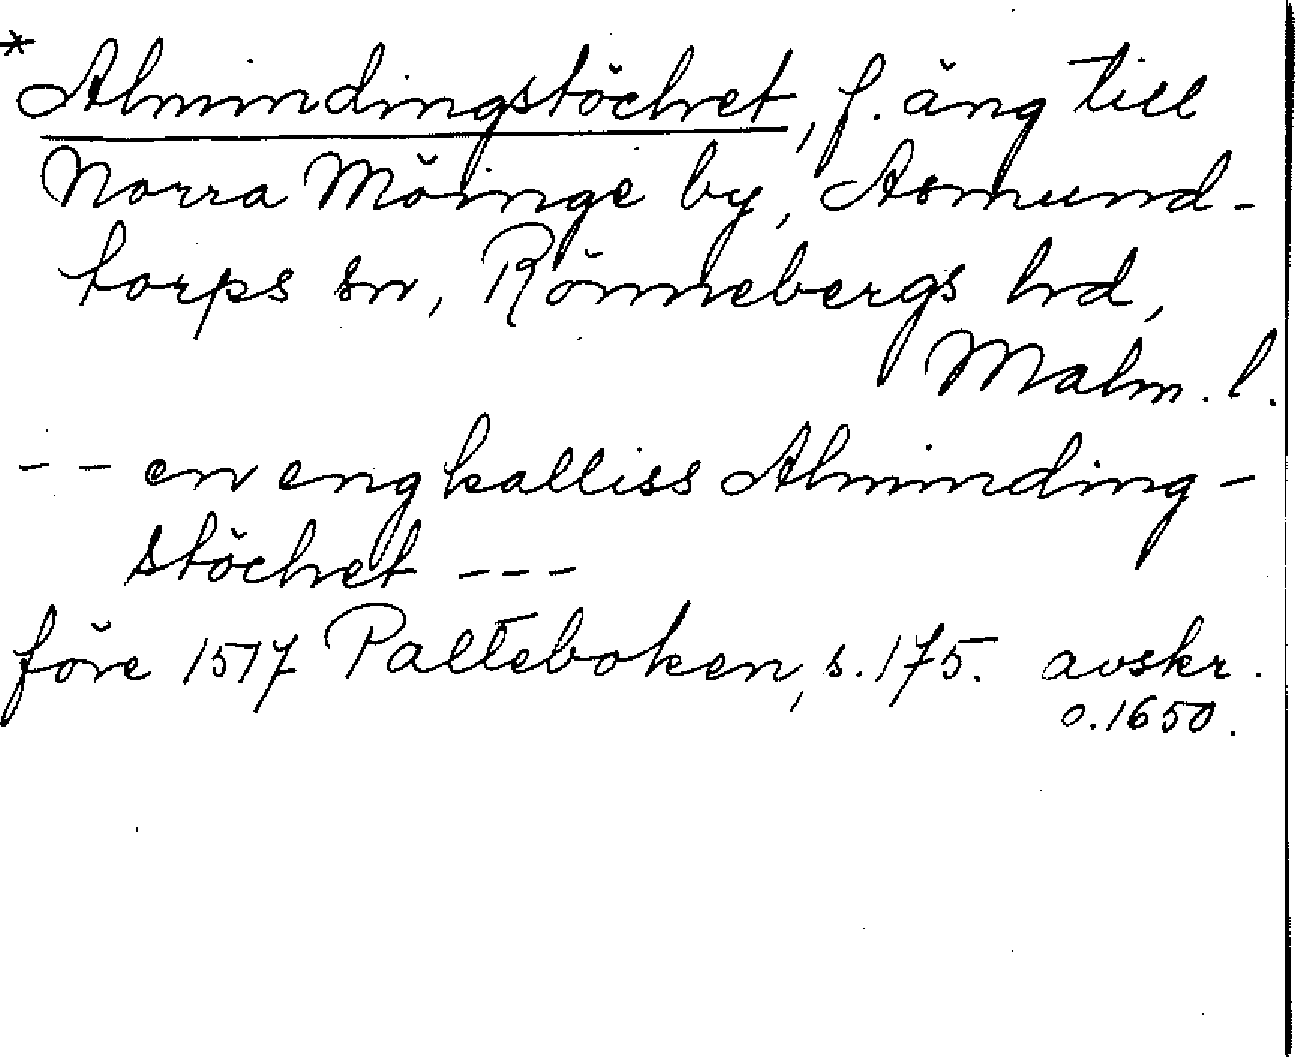 *Almindingstöchet, f. äng till
Norra Möinge by, Asmund-
torps sn, Rönnebergs hd,
Malm. l.
-- en eng kalliss Alminding-
stöchet ---
före 1517 Palteboken, s. 175. avskr.
o. 1650.